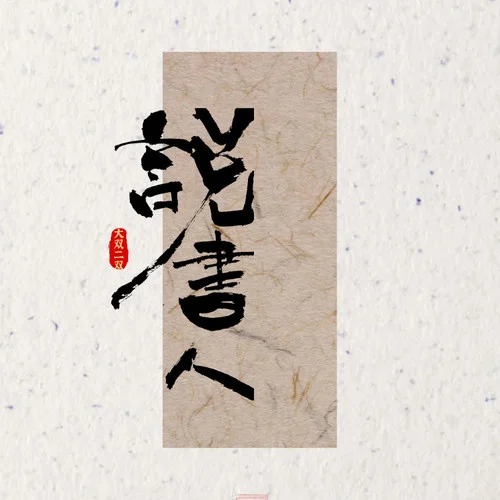 說書人
大双二双